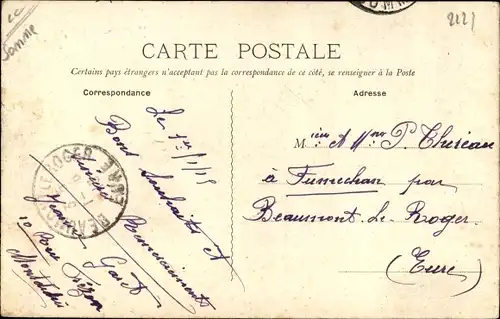 Somme
2121
CARTE POSTALE
Certains pays étrangers n'acceptant pas la correspondance de ce côté, se renseigner à la Poste
Correspondance
Adresse
Le 1er/1/15
Bons Souhaits et
Remerciements
Jean
10 Rue
Montdidier
Mieur & Mme P. Théréau
à Fumechon par
Beaumont-Le-Roger
(Eure)
BEAUMONT
EURE